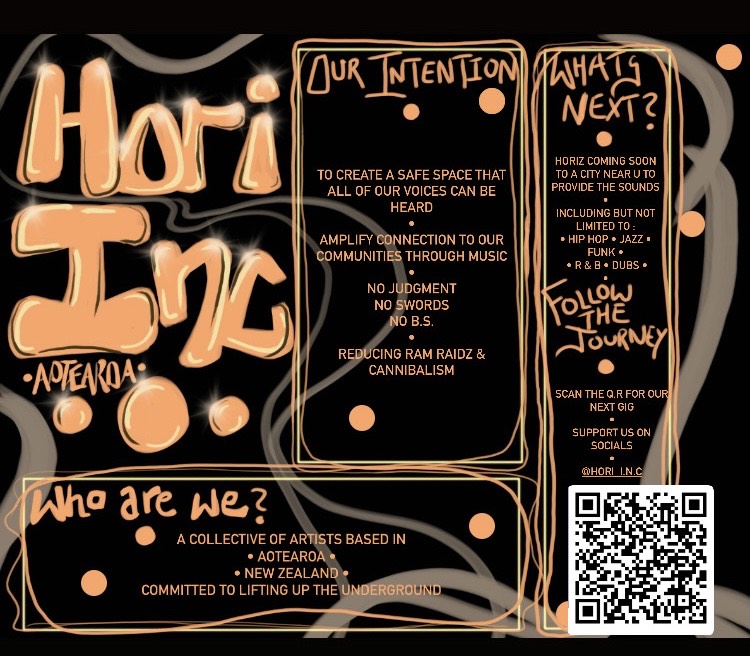 Hori
Inc
•AOTEAROA•
OUR INTENTION
TO CREATE A SAFE SPACE THAT
ALL OF OUR VOICES CAN BE
HEARD
•
AMPLIFY CONNECTION TO OUR
COMMUNITIES THROUGH MUSIC
•
NO JUDGMENT
NO SWORDS
NO B.S.
•
REDUCING RAM RAIDZ &
CANNIBALISM
WHATS
NEXT?
HORIZ COMING SOON
TO A CITY NEAR U TO
PROVIDE THE SOUNDS
•
INCLUDING BUT NOT
LIMITED TO :
• HIP HOP • JAZZ •
FUNK •
• R & B • DUBS •
•
FOLLOW
THE
JOURNEY
SCAN THE Q.R FOR OUR
NEXT GIG
•
SUPPORT US ON
SOCIALS
•
@HORI_I.N.C
Who are we?
A COLLECTIVE OF ARTISTS BASED IN
• AOTEAROA •
• NEW ZEALAND •
COMMITTED TO LIFTING UP THE UNDERGROUND